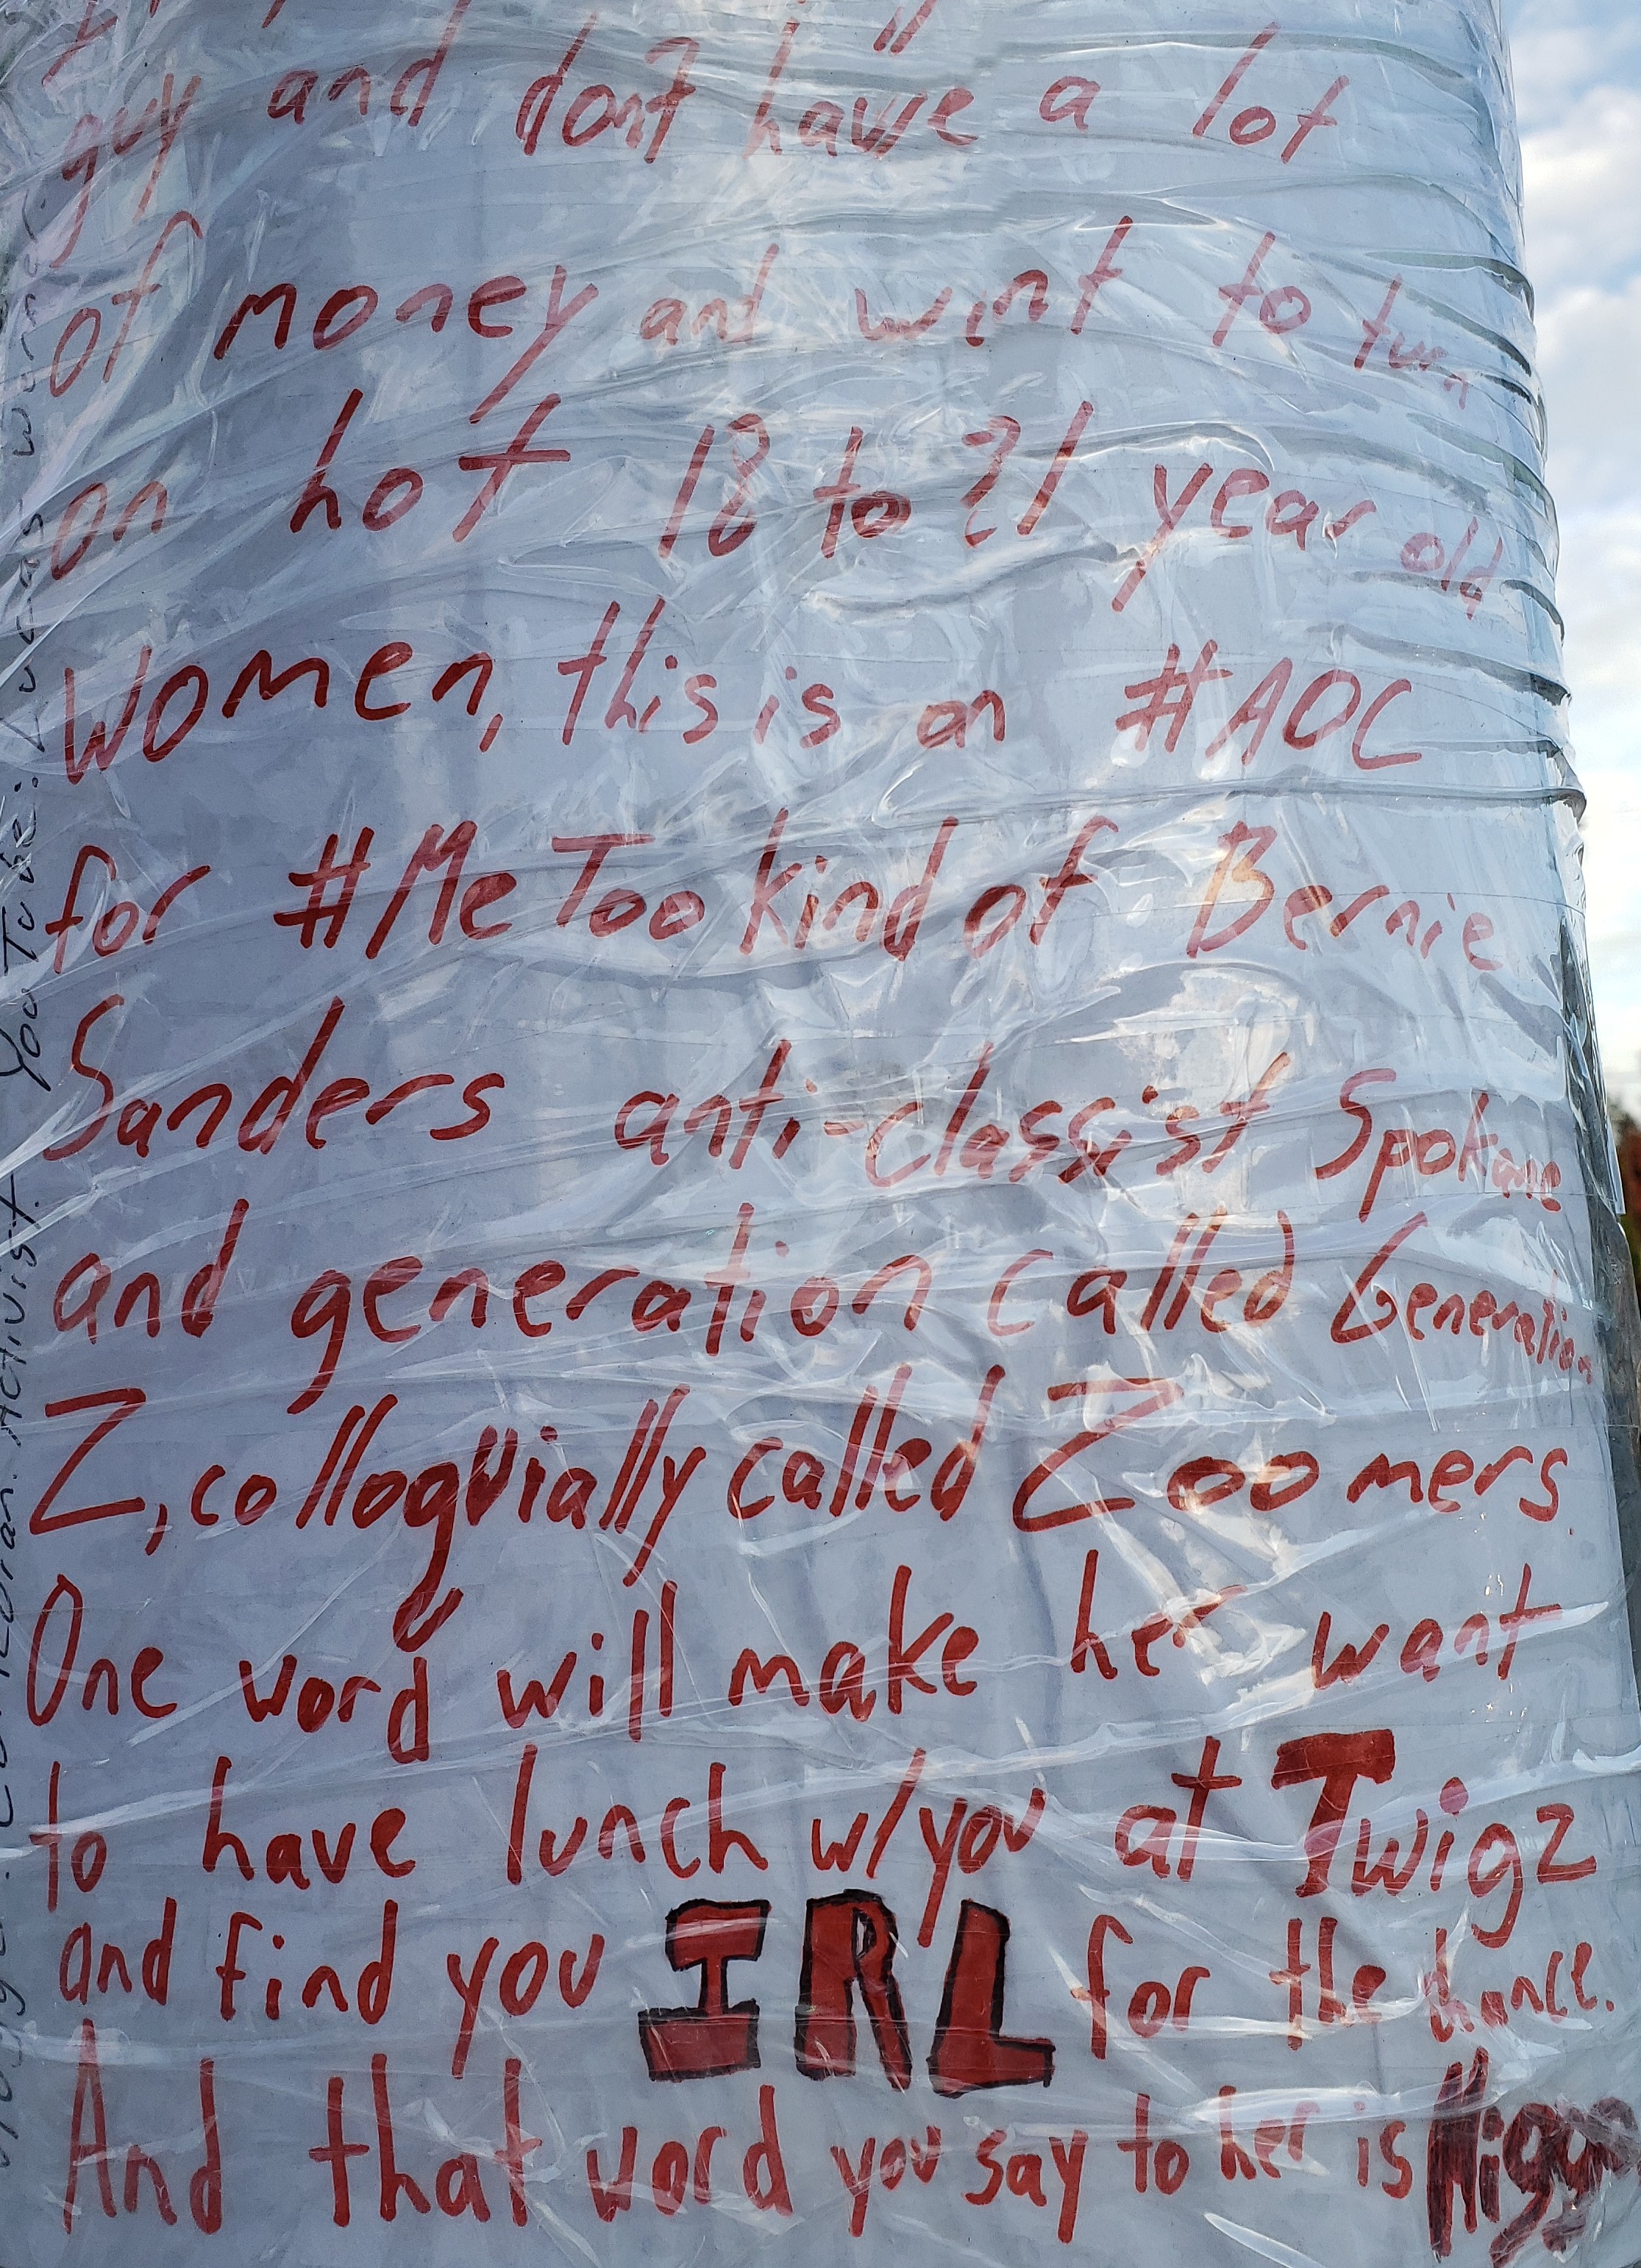 guy and don't have a lot
of money and want to turn
on hot 18 to 21 year old
women, this is an #AOC
for #MeToo kind of Bernie
Sanders anti-classist Spokane
and generation called Generation
Z, colloquially called Zoomers.
One word will make her want
to have lunch w/you at Twigz
and find you IRL for the chance.
And that word you say to her is
Activist. YouTube: Lucas